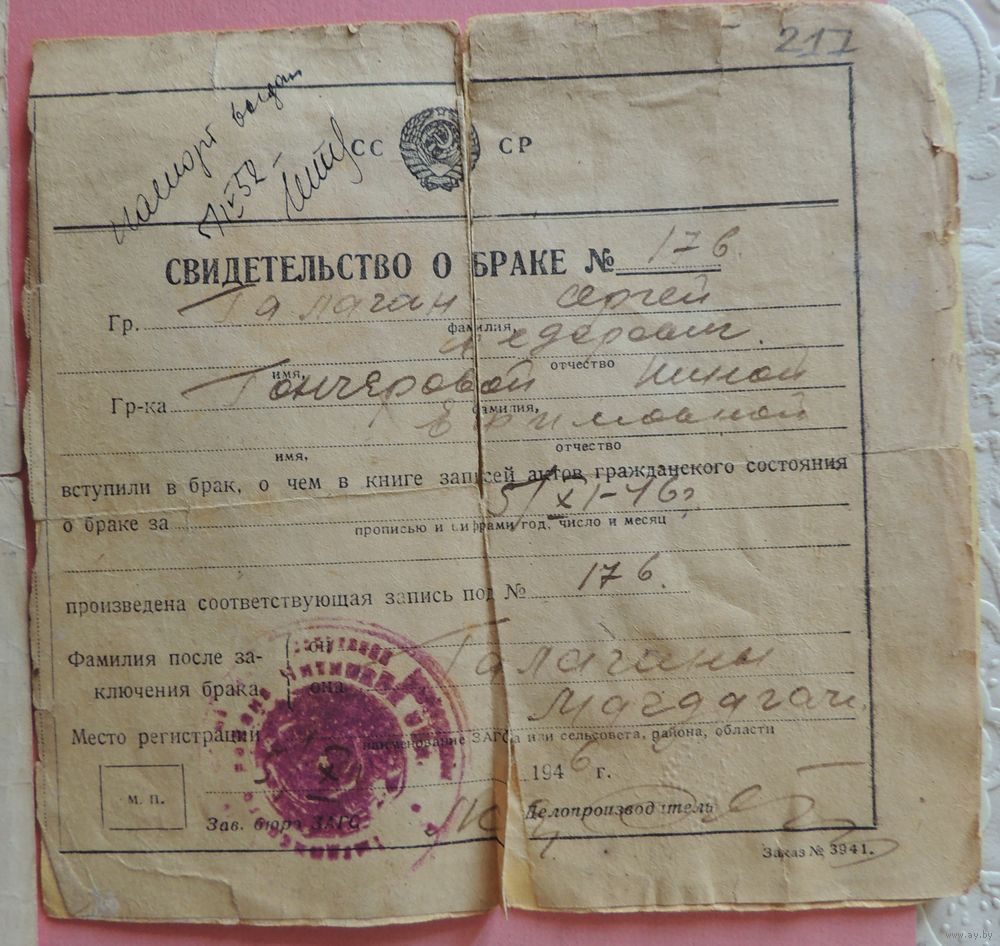 217
паспорт выдан
52
СС СР
СВИДЕТЕЛЬСТВО О БРАКЕ № 176.
Гр. Галаган Сергей
фамилия,
Федорович.
имя, отчество
Гр-ка Гончеровой Ниной
фамилия,
Ефимовной
имя, отчество
вступили в брак, о чем в книге записей актов гражданского состояния
о браке за 5/XI-46г
прописью и цифрами год, число и месяц
произведена соответствующая запись под № 176.
Фамилия после за-
ключения брака
он
она
Галаганы
Место регистрации Магдагачи
наименование ЗАГСа или сельсовета, района, области
5 XI 1946 г.
м. п.
Зав. бюро ЗАГС
Делопроизводитель
Заказ № 3941.
www.ay.by